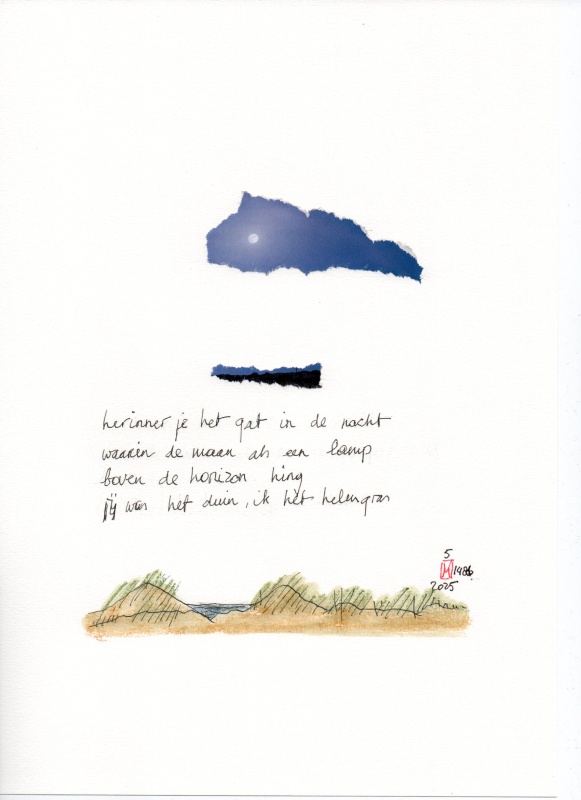 herinner je het gat in de nacht
waarin de maan als een lamp
boven de horizon hing
jij was het duin, ik het helmgras
5
M 1986
2025